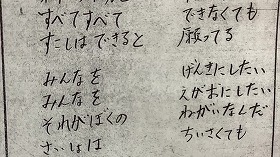 すべてすべて
すこしは できると
みんなを
みんなを
それがぼくの
できなくても
願ってる
げんきにしたい
えがおにしたい
ねがいなんだ
ちいさくても